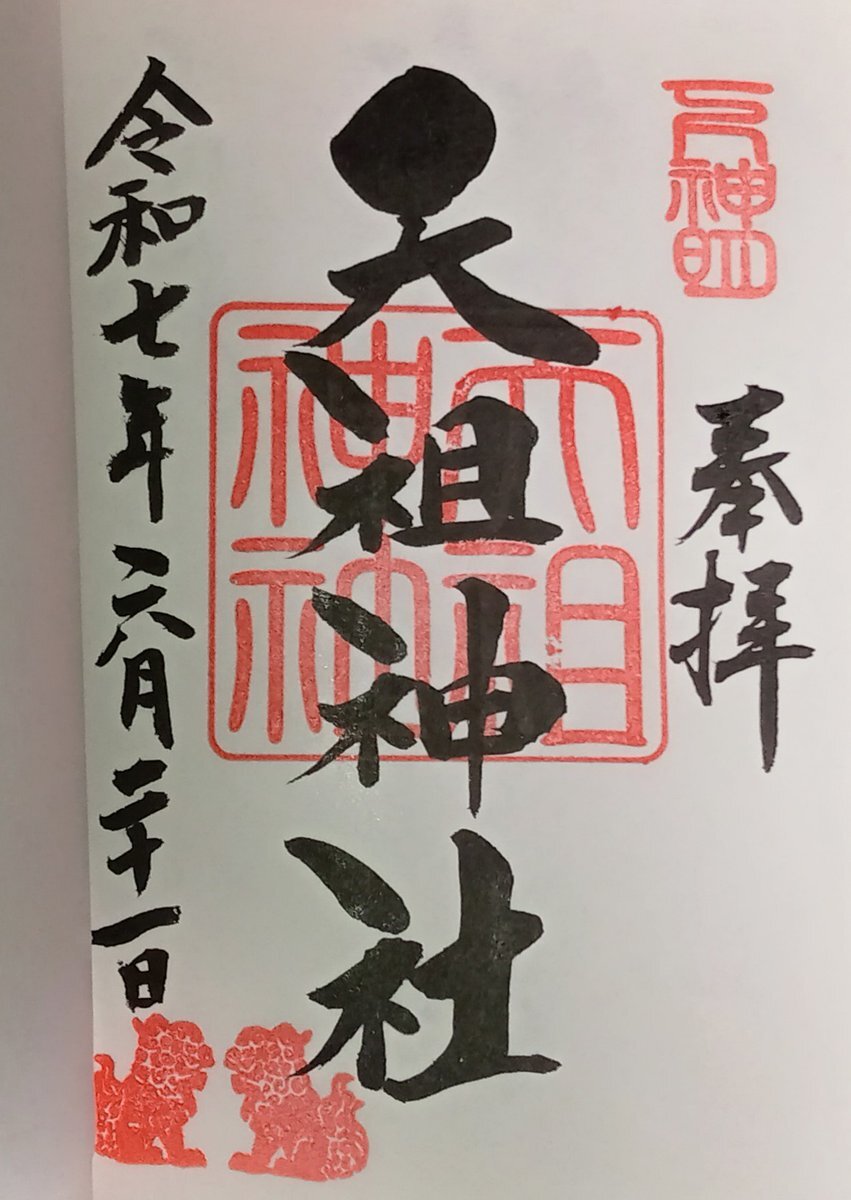 奉拝
天祖神社
令和七年六月二十一日
天祖神社